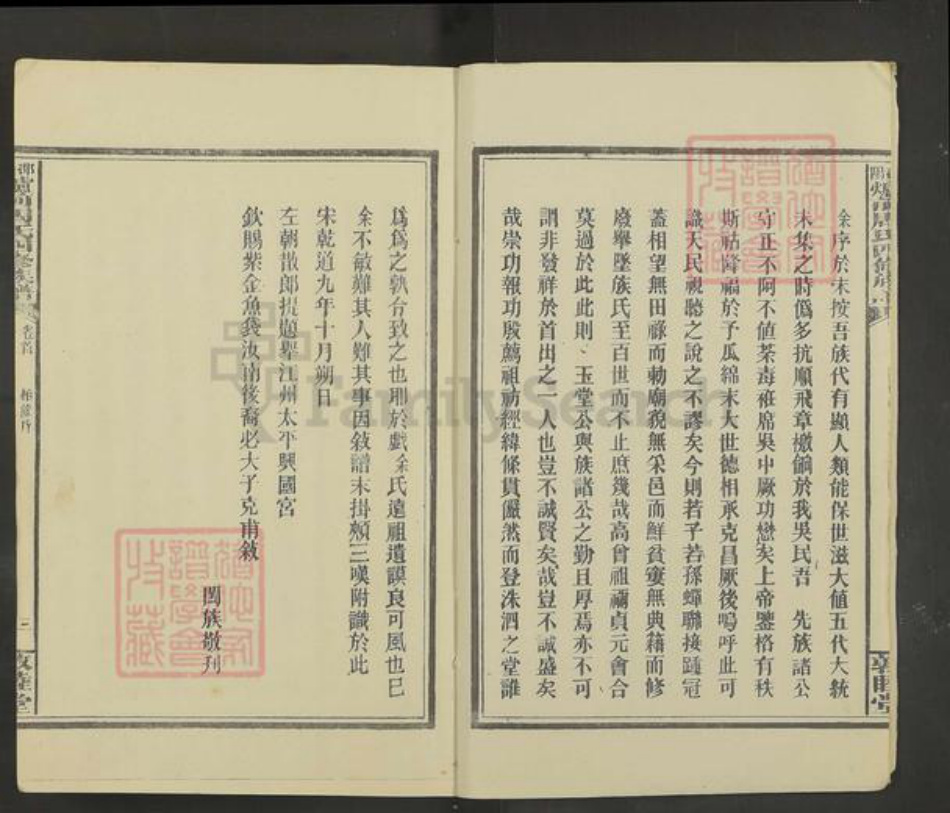 余序於末按吾族代有顯人類能保世滋大値五代大統
未集之時僞多抗順飛章檄餉於我吳民吾　先族諸公
守正不阿不値荼毒袵席吳中厥功懋矣上帝鑒格有秩
斯祜裔福於予瓜綿末大世德相承克昌厥後嗚呼此可
識天民視聽之說之不謬矣今則若子若孫蟬聯接踵冠
蓋相望無田祿而勅廟貌無采邑而鮮貧窶無典藉而修
廢舉墜族氏至百世而不止庶幾哉高曾祖禰貞元會合
莫過於此此則、玉堂公與族諸公之勤且厚焉亦不可
謂非發祥於首出之一人也豈不誠賢矣哉豈不誠盛矣
哉崇功報功殷薦祖祊經緯條貫儼然而登洙泗之堂誰
爲爲之孰令致之也耶於戲余氏遠祖遺謨良可風也已
余不敏難其人難其事因敍譜末掛頰三嘆附識於此
宋乾道九年十月朔日
左朝散郎提題舉江州太平興國宮
欽賜紫金魚袋汝南後裔必大子克甫敍
閤族敬刊
卷首
三
敦睦堂
敦睦堂
FamilySearch